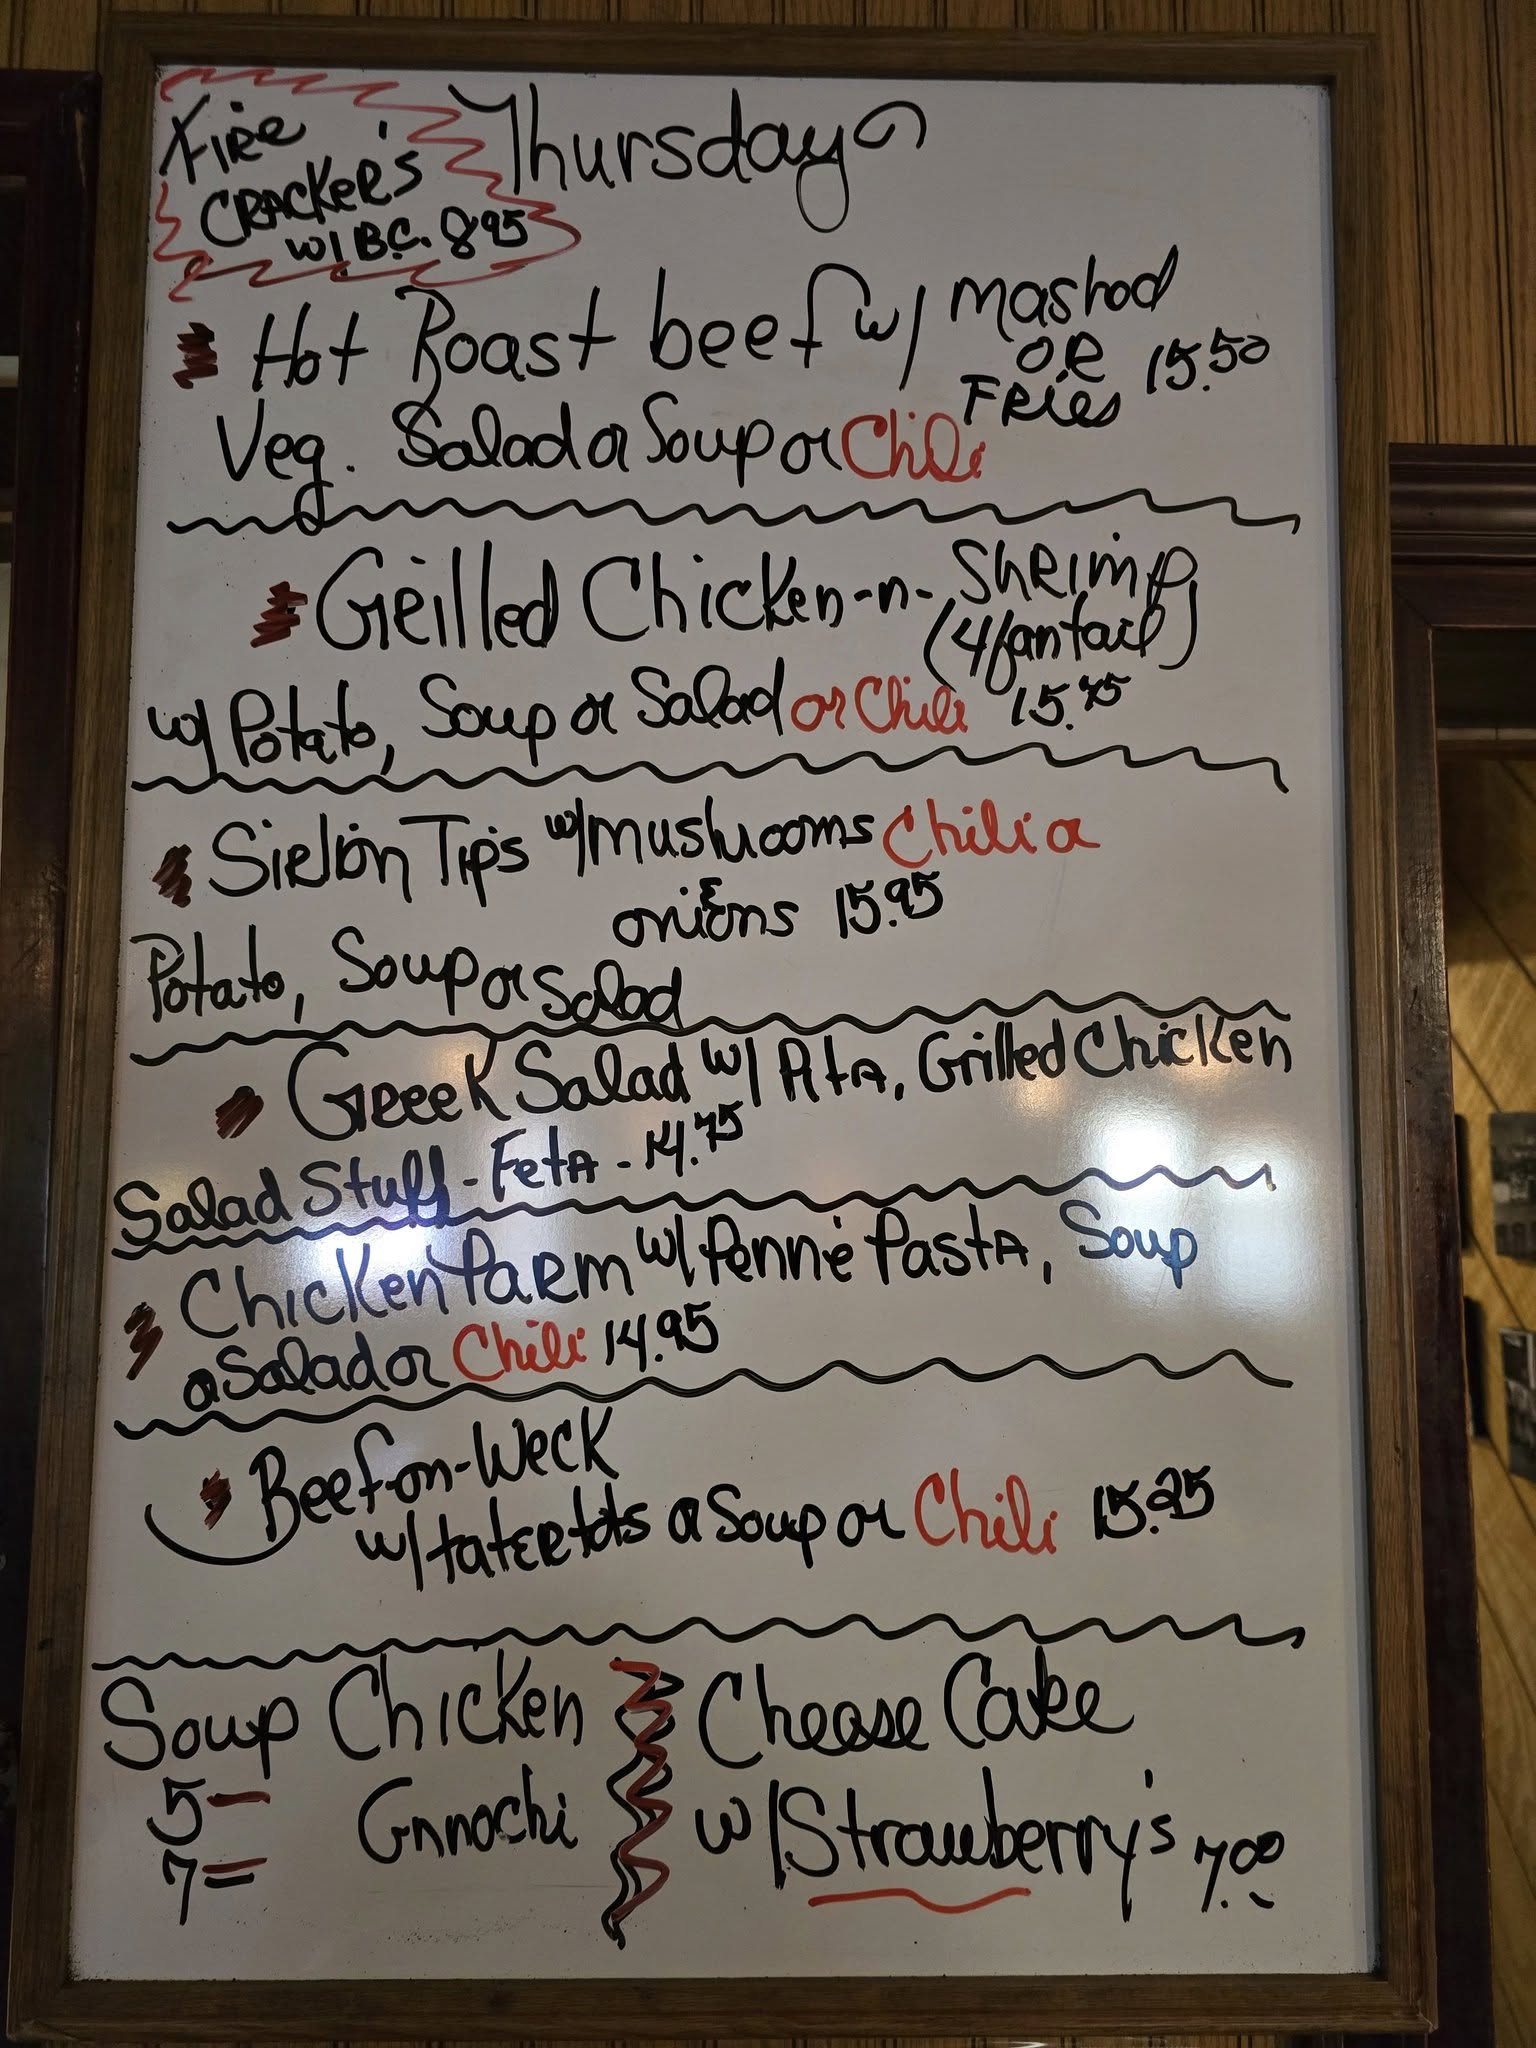 Fire
CRACKER'S
w/ B.C. 8.95
Thursday
Hot Roast beef w/ mashod
OR
FRies 15.50
Veg. Salad or Soup or Chili
Grilled Chicken-n-ShRimp
(4 fantail)
w/ Potato, Soup or Salad or Chili 15.75
Sirloin Tips w/ mushrooms Chili or
& onions 15.95
Potato, Soup or Salad
Greek Salad w/ Pita, Grilled Chicken
Salad Stuff - Feta - 14.75
Chicken Parm w/ Penne Pasta, Soup
or Salad or Chili 14.95
Beef-on-Weck
w/ tatertots or Soup or Chili 15.25
Soup Chicken
5-
Gnnochi
7=
Cheese Cake
w/ Strawberry's 7.00